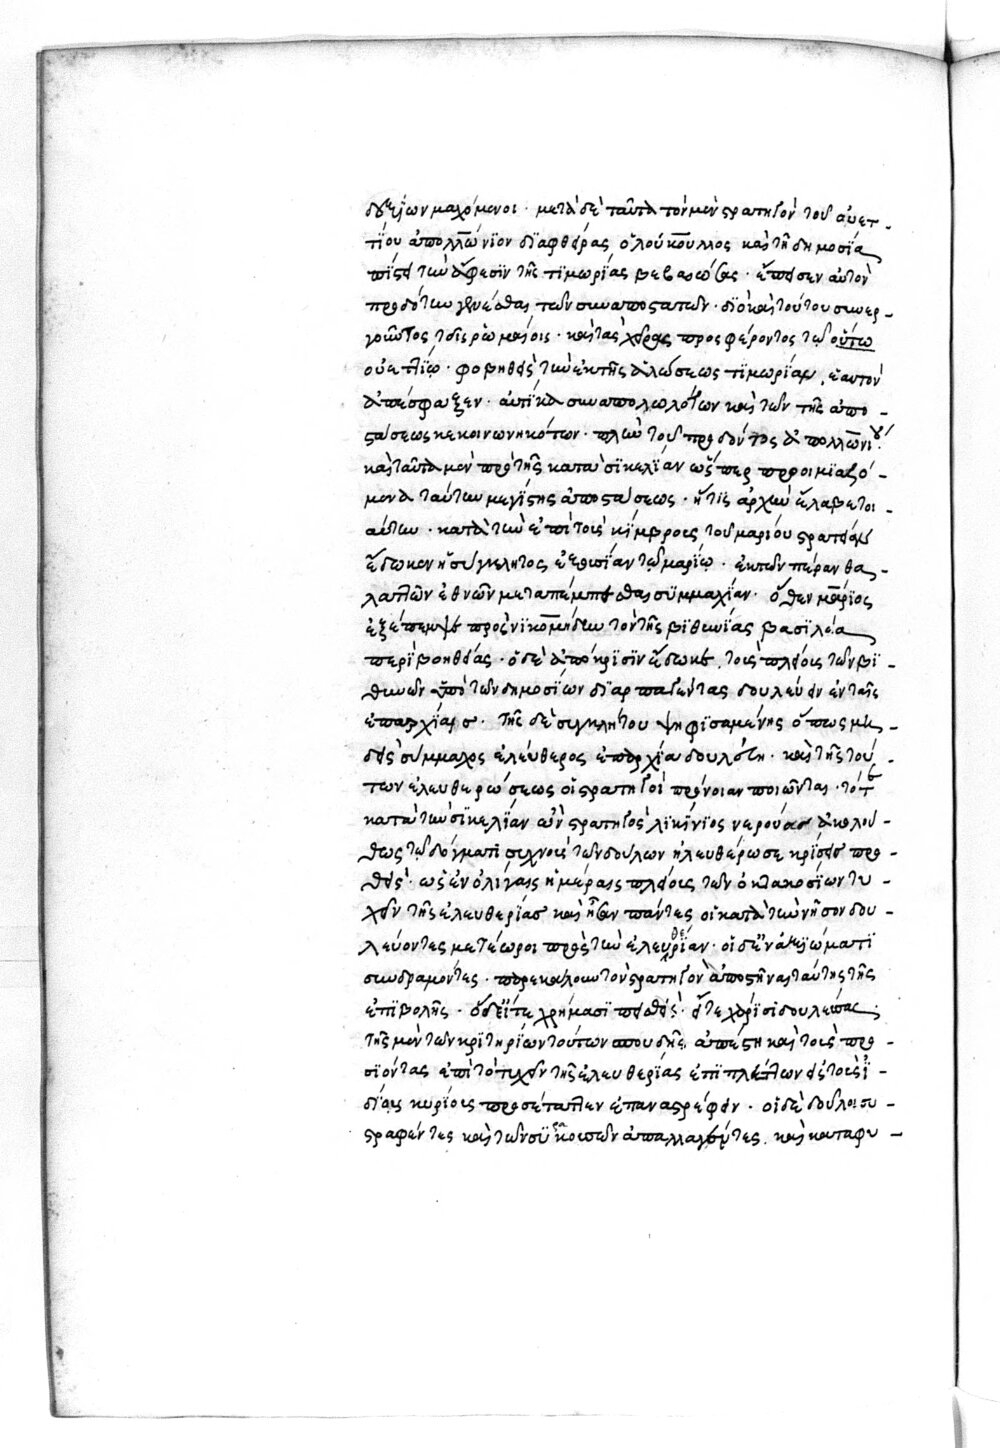 δυεῖων μαχόμενοι · μετὰ δὲ ταῦτα τὸν μὲν στρατηγὸν τοῦ οὐετ-
τίου ἀπολλώνιον διαφθείρας ὁ λούκουλλος καὶ τῇ δημοσίᾳ
πίστει τὴν ἄφεσιν τῆς τιμωρίας βεβαιώσας · ἔπεισεν αὐτὸν
προδότην γενέσθαι τῶν συναποστατῶν · διὸ καὶ τούτου συνερ-
γοῦντος τοῖς ῥωμαίοις · καὶ τὰς χεῖρας προσφέροντος τῷ οὕτω
οὐεττίῳ · φοβηθεὶς τὴν ἐκ τῆς ἁλώσεως τιμωρίαν, ἑαυτὸν
ἀπέσφαξεν · αὐτίκα συναπολωλότων καὶ τῶν τῆς ἀπο-
στάσεως κεκοινωνηκότων · πλὴν τοῦ προδόντος ἀπολλωνίου·
καὶ ταῦτα μὲν πρὸ τῆς κατὰ σικελίαν ὥσπερ προοιμιαζό-
μενα ταύτην μεγίστης ἀποστάσεως · ἥτις ἀρχὴν ἔλαβε τοι-
αύτην · κατὰ τὴν ἐπὶ τοὺς κίμβρους τοῦ μαρίου στρατείαν
ἔδωκεν ἡ σύγκλητος ἐξουσίαν τῷ μαρίῳ · ἐκ τῶν πέραν θα-
λάττης ἐθνῶν μεταπέμπεσθαι συμμαχίαν · ὅθεν μάριος
ἐξέπεμψε πρὸς νικομήδην τὸν τῆς βιθυνίας βασιλέα
περὶ βοηθείας · ὁ δὲ ἀπόκρισιν ἔδωκε, τοὺς πλείους τῶν βι-
θυνῶν ὑπὸ τῶν δημοσίων διαρπαγέντας δουλεύειν ἐν ταῖς
ἐπαρχίαις · τῆς δὲ συγκλήτου ψηφισαμένης ὅπως μη-
δεὶς σύμμαχος ἐλεύθερος ἐπαρχίᾳ δουλεύῃ · καὶ τῆς τού-
των ἐλευθερώσεως οἱ στρατηγοὶ πρόνοιαν ποιῶνται · τότε
κατὰ τὴν σικελίαν ὢν στρατηγὸς λικίνιος νερούας ἀκολού-
θως τῷ δόγματι συχνοὺς τῶν δούλων ἠλευθέρωσε κρίσεις προ-
θείς · ὡς ἐν ὀλίγαις ἡμέραις πλείους τῶν ὀκτακοσίων τυ-
χεῖν τῆς ἐλευθερίας καὶ ἦσαν πάντες οἱ κατὰ τὴν νῆσον δου-
λεύοντες μετέωροι πρὸς τὴν ἐλευθερίαν · οἱ δ' ἐν ἀξιώματι
συνδραμόντες · παρεκάλουν τὸν στρατηγὸν ἀποστῆναι ταύτης τῆς
ἐπιβολῆς · ὁ δ' εἴτε χρήμασι πεισθείς · εἴτε χάρισι δουλεύσας
τῆς μὲν τῶν κριτηρίων τούτων σπουδῆς ἀπέστη καὶ τοὺς προ-
σιόντας ἐπὶ τὸ τυχεῖν τῆς ἐλευθερίας ἐπιπλήττων εἰς τοὺς ἰ-
δίους κυρίους προσέταττεν ἐπαναστρέφειν · οἱ δὲ δοῦλοι συ-
στραφέντες καὶ τῶν συρακουσῶν ἀπαλλαγέντες, καὶ καταφυ-